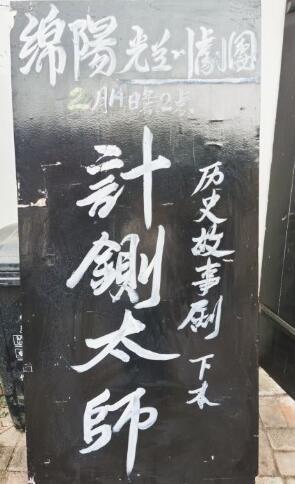 绵陽光兰川劇團
2月14日2点
历史故事剧 下本
計鍘太師